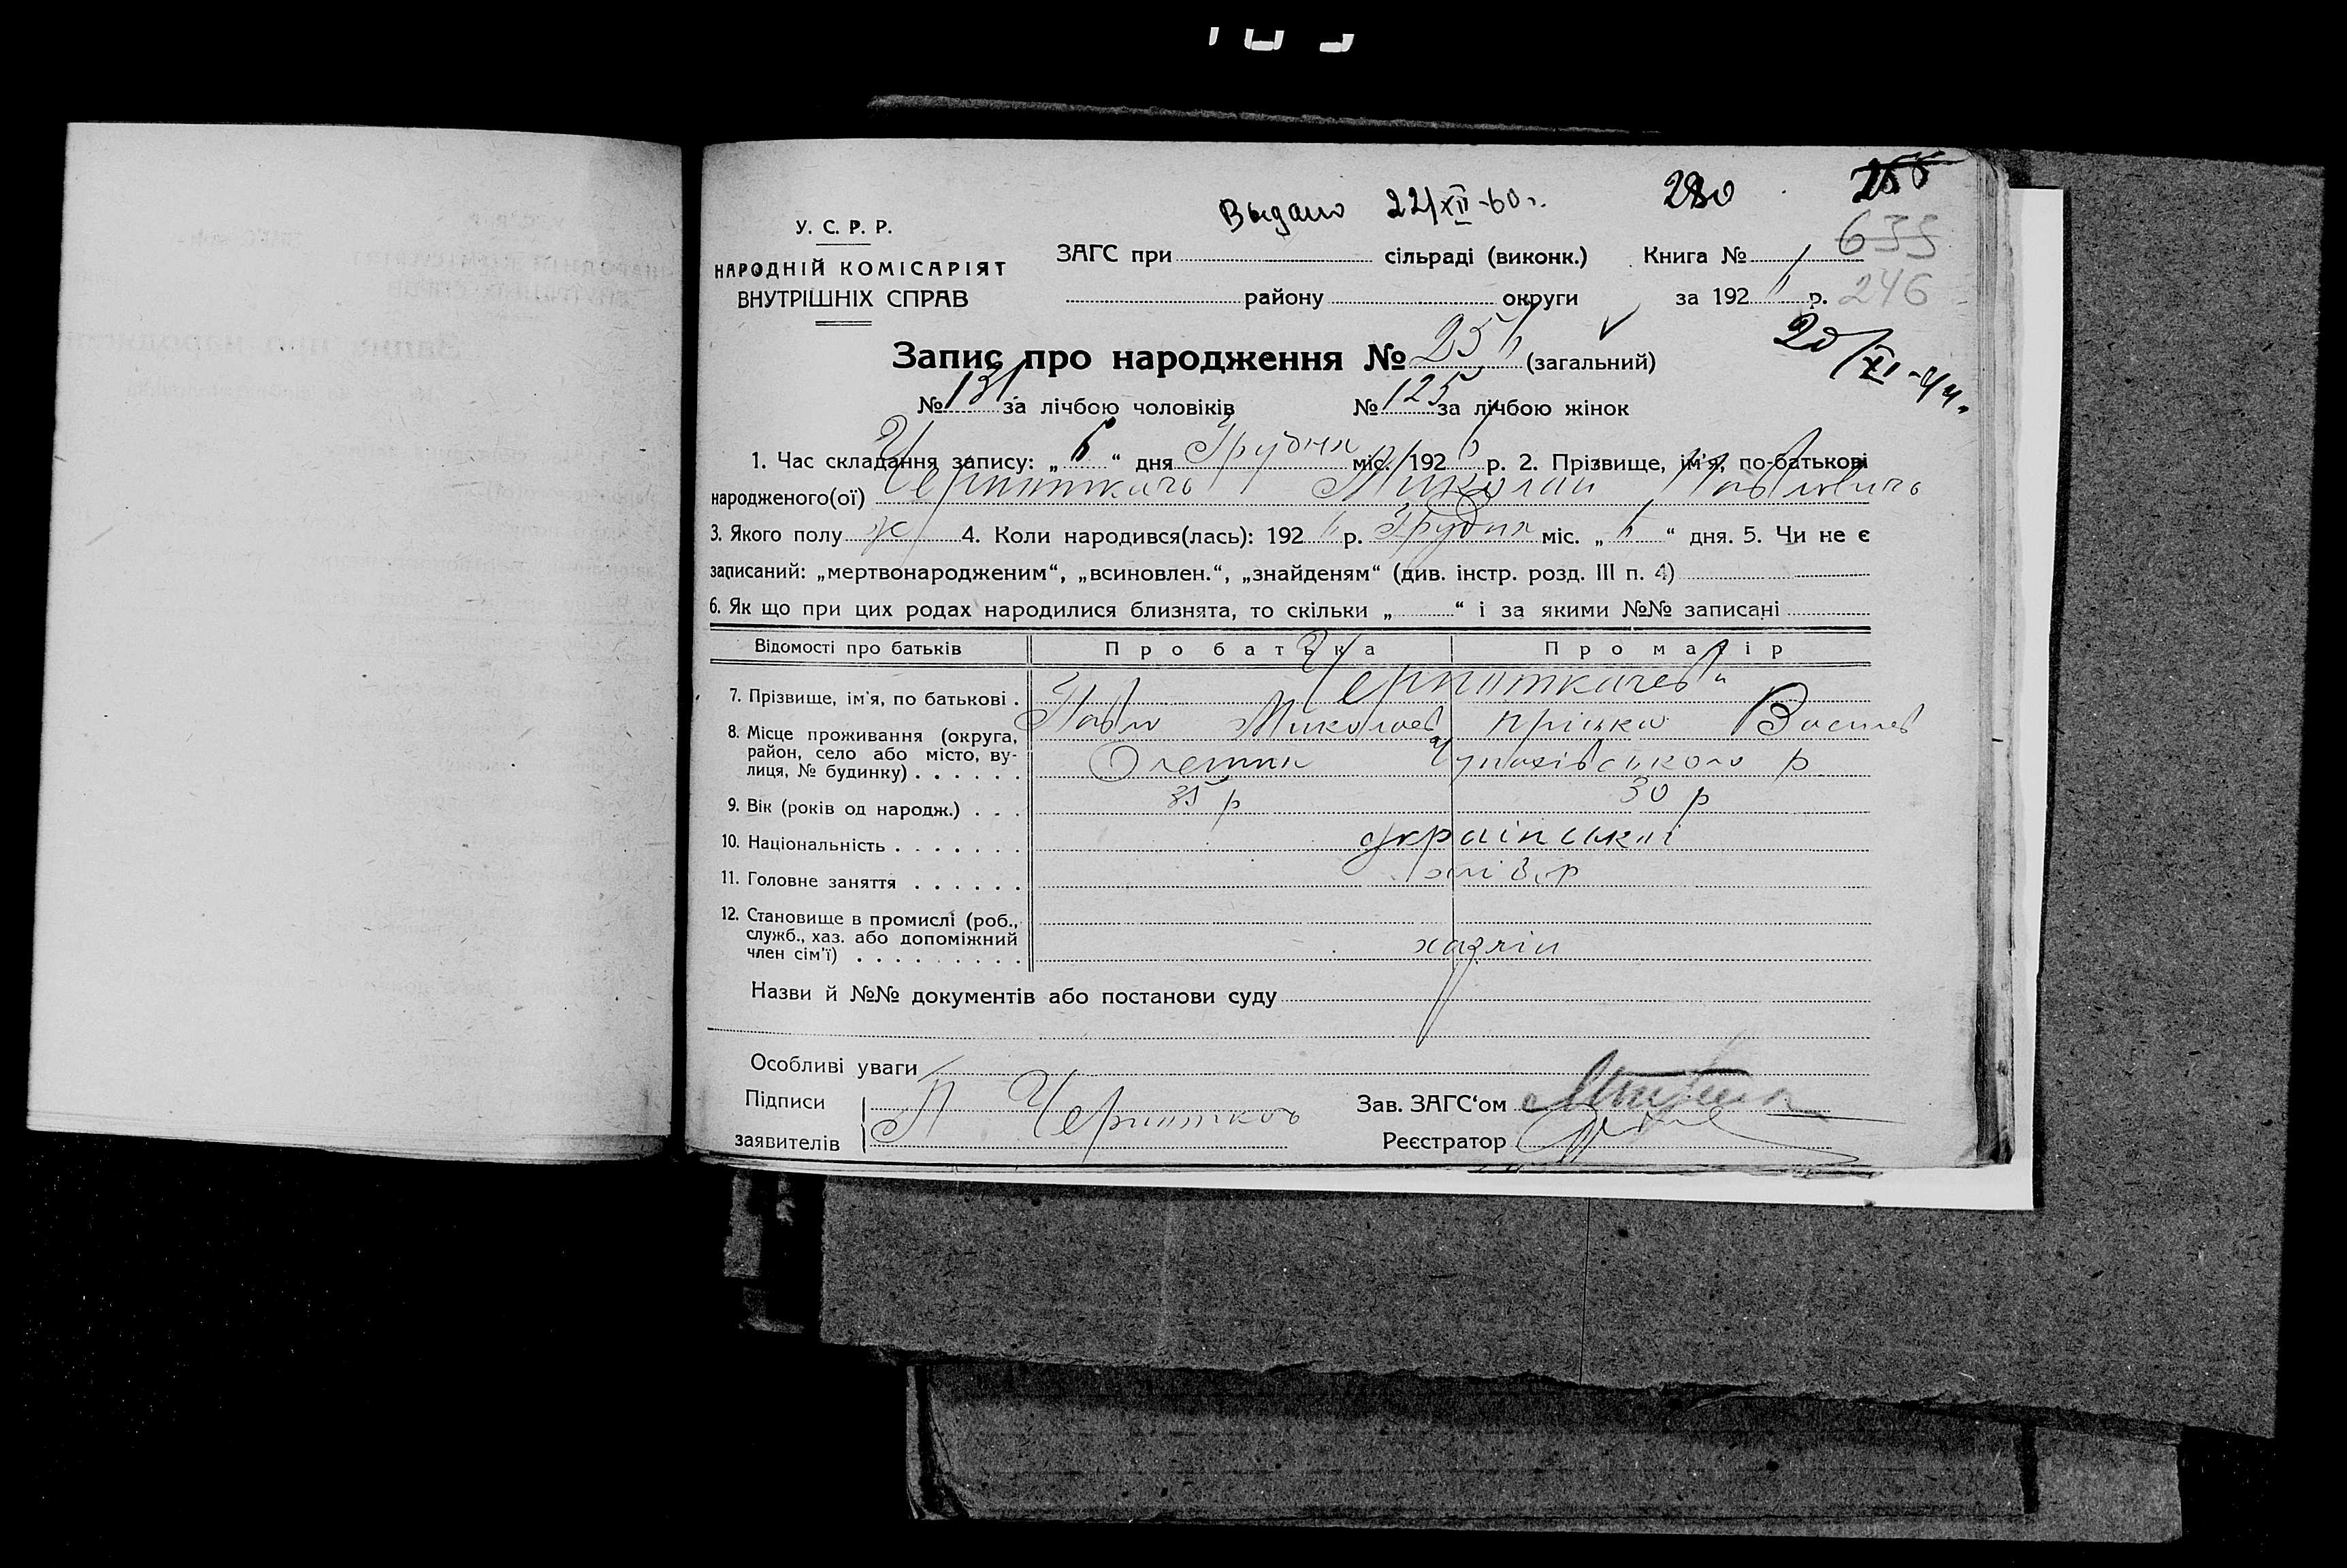 Выдано 22/XII-60 г. 280
У. С. Р. Р.
НАРОДНІЙ КОМІСАРІЯТ
ВНУТРІШНІХ СПРАВ
635
246
ЗАГС при сільраді (виконк.) Книга № 1
району округи за 192 6 р.
20/XI-44.
Запис про народження № 256 (загальний)
№ 131 за лічбою чоловіків № 125 за лічбою жінок
1. Час складання запису: „ 6 “ дня Грудня міс. 192 6 р. 2. Прізвище, ім'я, по-батькові
народженого(ої) Миколай Павлович
3. Якого полу ж 4. Коли народився(лась): 192 6 р. Грудня міс. „ 6 “ дня. 5. Чи не є
записаний: „мертвонародженим“, „всиновлен.“, „знайденям“ (див. інстр. розд. III п. 4)
6. Як що при цих родах народилися близнята, то скільки „ “ і за якими №№ записані
Відомості про батьків Про батька Про матір
7. Прізвище, ім'я, по батькові .
Павло Миколаєв Пріська Василев
8. Місце проживання (округа, район, село або місто, вулиця, № будинку) . . . . . . Олешні Чупахівського р
9. Вік (років од народж.) . . . 35 р 30 р
10. Національність . . . . . . . українські
11. Головне заняття . . . . . . хлібор
12. Становище в промислі (роб., служб., хаз. або допоміжний член сім'ї) . . . . . . . . . хазяїн
Назви й №№ документів або постанови суду
Особливі уваги
Підписи
заявителів П
Зав. ЗАГС‘ом
Реєстратор